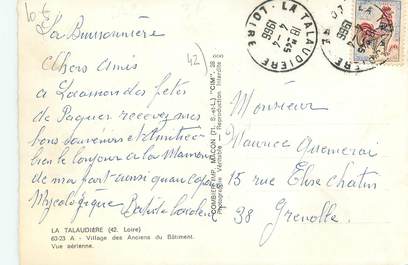 10 €
La Buissonnière
42
Chers amis
a L'occasion des fêtes
de Paques recevez mes
bons souvenirs et Amitié
bien le bonjour a la Maman
de ma part ainsi qu'au copain
Mycologique Batiste
LA TALAUDIÈRE (42. Loire)
63-23 A - Village des Anciens du Bâtiment.
Vue aérienne.
COMBIER IMP. MACON (71. S.-et-L.) "CIM"
Photographie Véritable - Reproduction Interdite
LA TALAUDIERE
LOIRE
18 H45
4-4
1966
Monsieur
Maurice
15 rue Elise Chatin
38 Grenoble